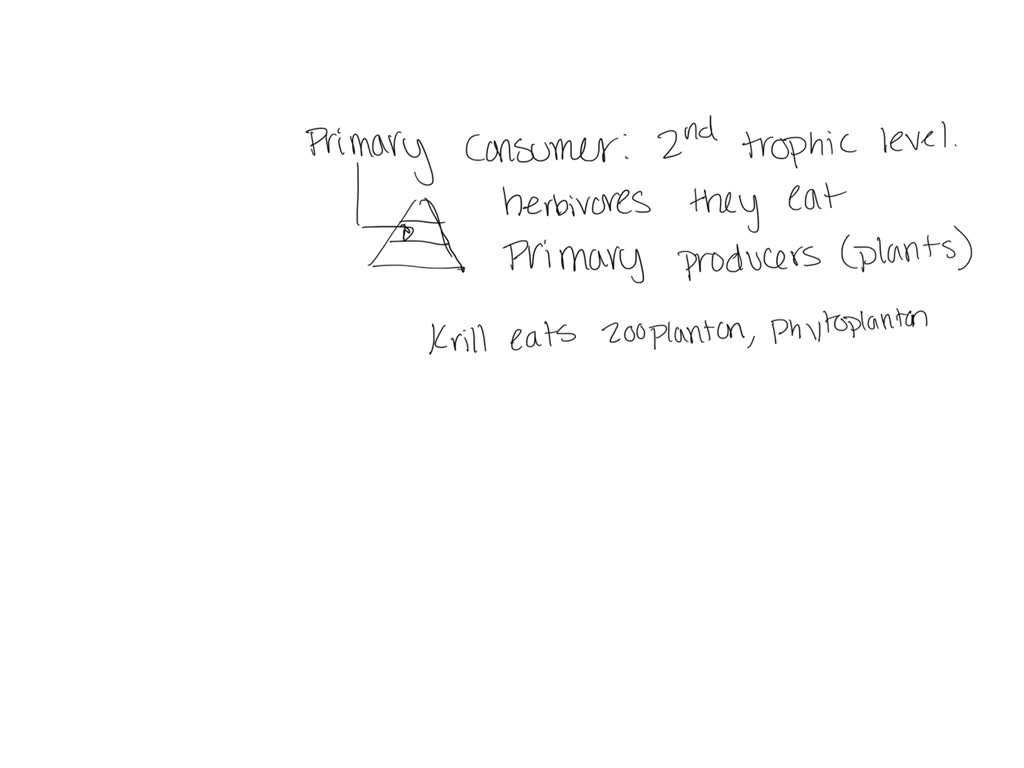 Primary Consumer: 2nd trophic level.
herbivores they eat
Primary producers (plants)
Krill eats zooplanton, Phytoplanton